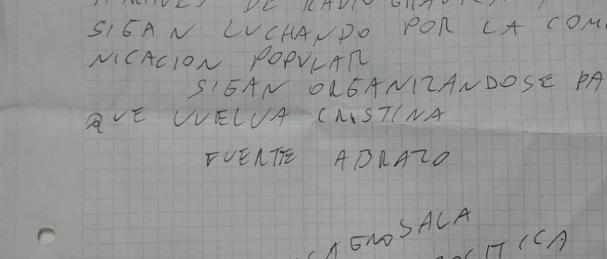 DE RADIO GRAFICA Y
SIGAN LUCHANDO POR LA COMU
NICACION POPULAR
SIGAN ORGANIZANDOSE PA
QUE VUELVA CRISTINA
FUERTE ABRAZO
SALA